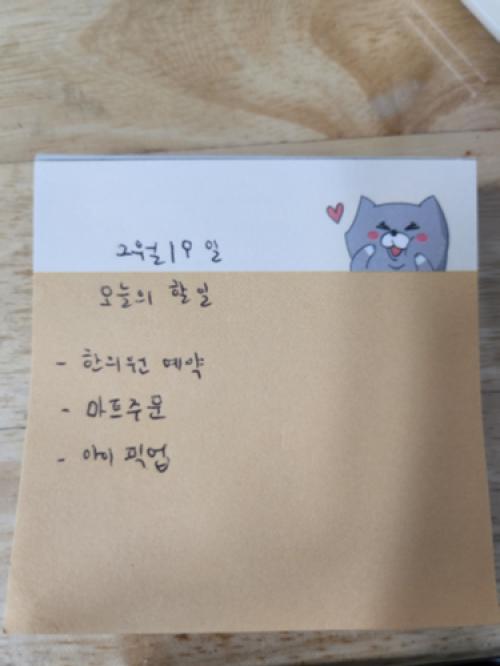 2월 19일
오늘의 할일
- 한의원 예약
- 마트주문
- 아이 픽업